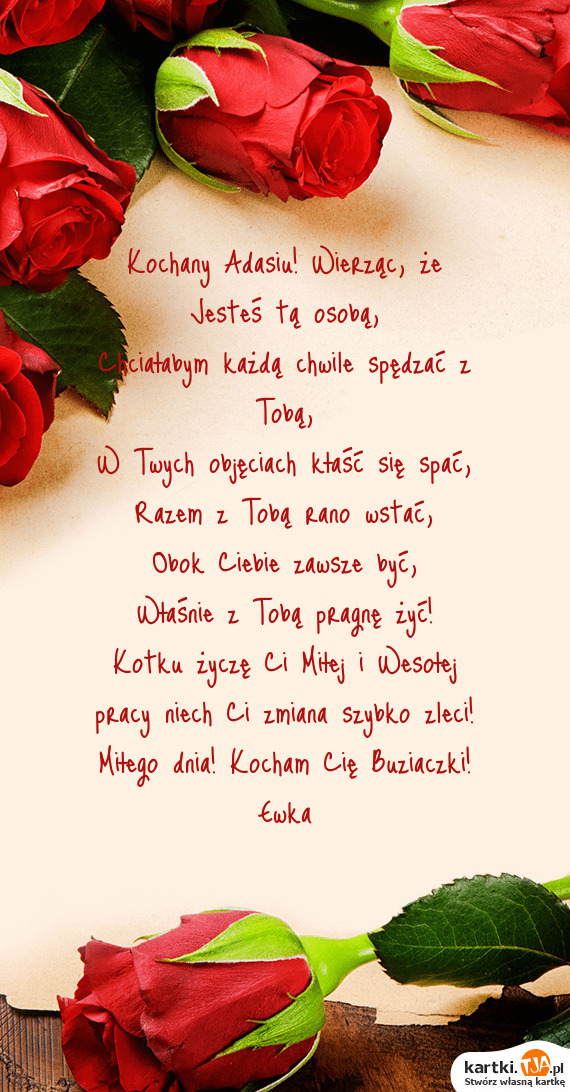 Kochany Adasiu! Wierząc, że
Jesteś tą osobą,
Chciałabym każdą chwile spędzać z
Tobą,
W Twych objęciach kłaść się spać,
Razem z Tobą rano wstać,
Obok Ciebie zawsze być,
Właśnie z Tobą pragnę żyć!
Kotku życzę Ci Miłej i Wesołej
pracy niech Ci zmiana szybko zleci!
Miłego dnia! Kocham Cię Buziaczki!
Ewka
kartki.TJA.pl
Stwórz własną kartkę